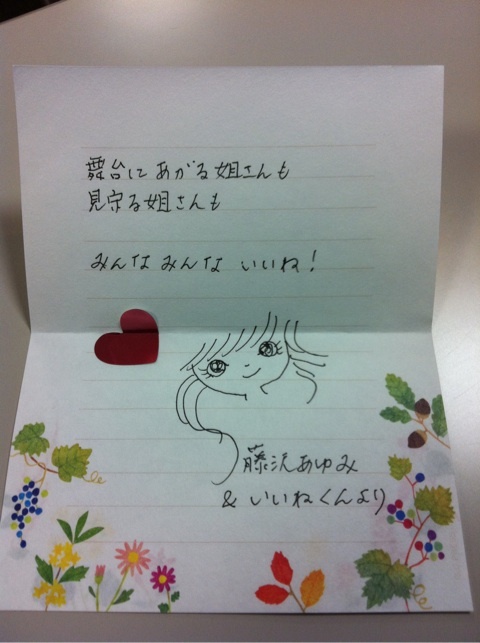 舞台にあがる姐さんも
見守る姐さんも
みんな みんな いいね!
藤沢あゆみ
& いいねくんより